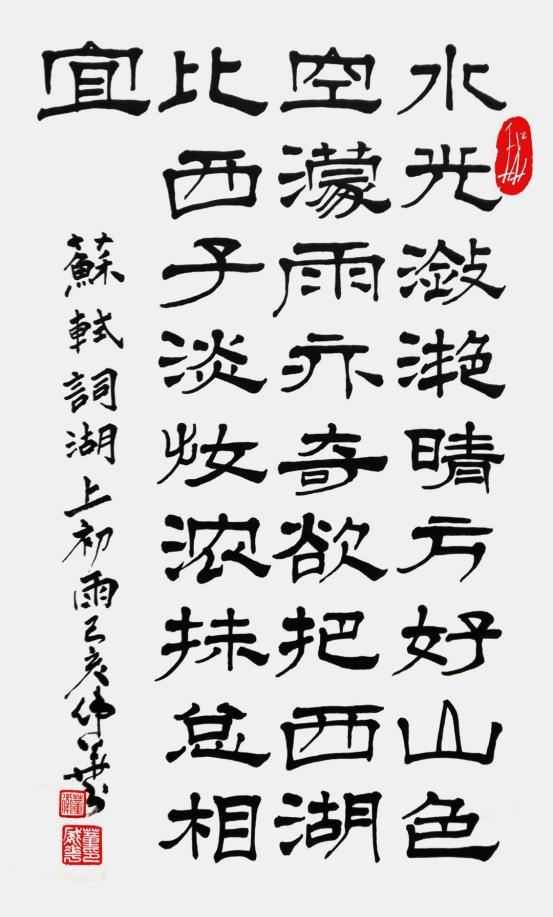 水光潋滟晴方好山色
空濛雨亦奇欲把西湖
比西子淡妆浓抹总相
宜
蘇軾詞湖上初雨己亥